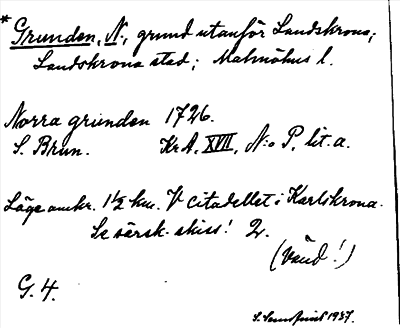 * Grunden, N., grund utanför Landskrona;
Landskrona stad; Malmöhus l.
Norra grunden 1726.
S. Brun. KrA, XVII, N:o P, lit. a.
Läge omkr. 1½ km. V citadellet i Karlskrona.
Se särsk. skiss! 2.
(Vänd!)
G. 4.
1937.